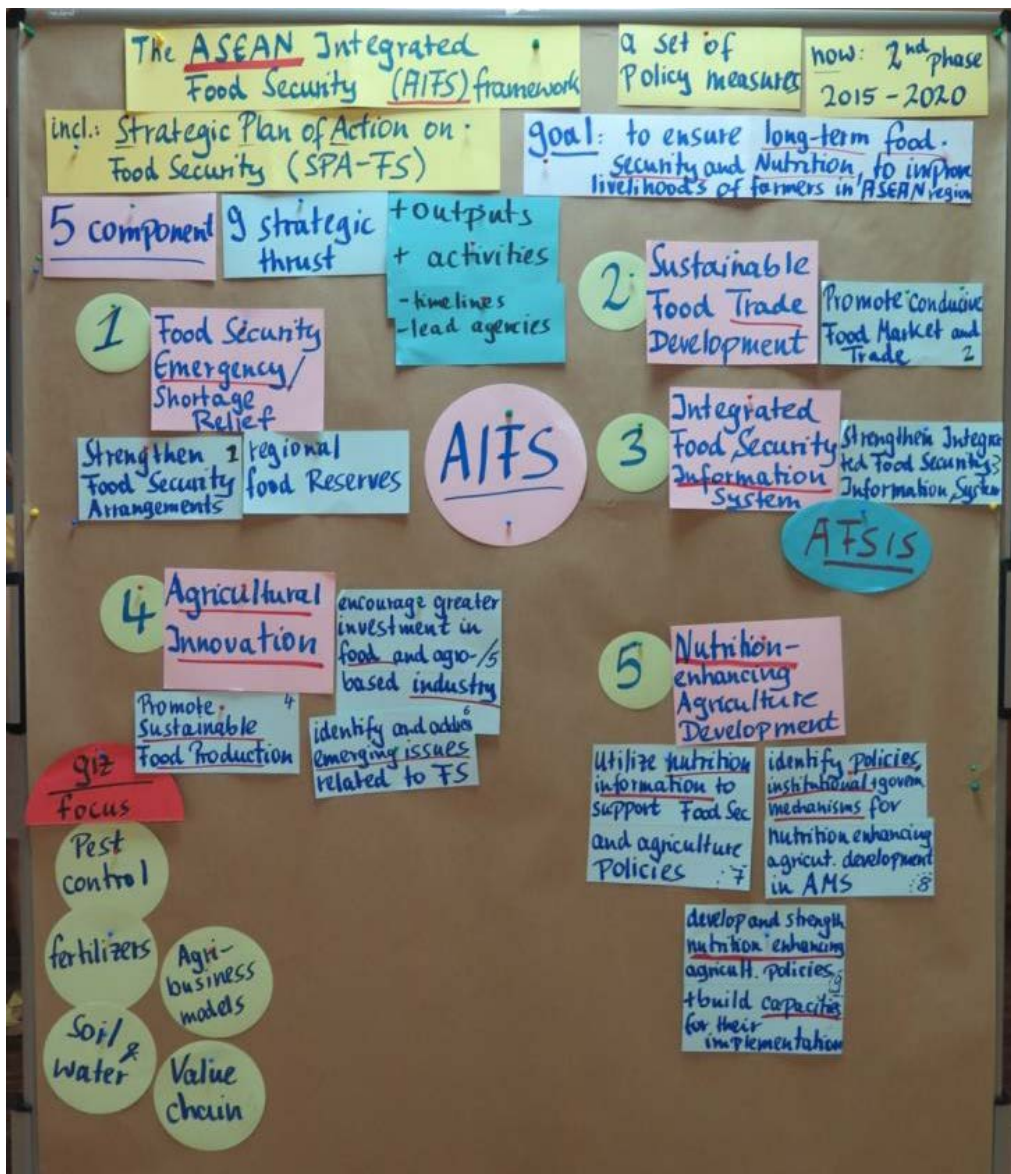 The ASEAN Integrated
Food Security (AIFS) framework
a set of
Policy measures
now: 2nd phase
2015-2020
incl.: Strategic Plan of Action on
Food Security (SPA-FS)
goal: to ensure long-term food
security and Nutrition, to improve
livelihoods of farmers in ASEAN region
5 component
9 strategic
thrust
+ outputs
+ activities
- timelines
- lead agencies
1
Food Security
Emergency/
Shortage
Relief
Strengthen 1
Food Security
Arrangements
regional
food Reserves
2
Sustainable
Food Trade
Development
Promote conducive
Food Market and
Trade 2
AIFS
3
Integrated
Food Security
Information
System
Strengthen Integra
ted Food Security 3
Information System
AFSIS
4
Agricultural
Innovation
encourage greater
investment in
food and agro-/5
based industry
Promote 4
Sustainable
Food Production
identify and addres 6
emerging issues
related to FS
5
Nutrition-
enhancing
Agriculture
Development
Utilize nutrition
information to
support Food Sec
and agriculture
Policies :7
identify policies,
institutional + govern
mechanisms for
nutrition enhancing
agricult. development
in AMS :8
develop and strength
nutrition enhancing
agricult. policies 9
+ build capacities
for their
implementation
giz
focus
Pest
control
fertilizers
Agri-
business
models
Soil &
water
Value
chain